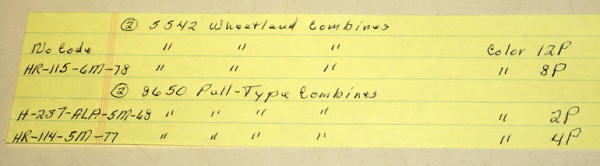 ② 5542 Wheatland Combines
No Code " " " Color 12P
HR-115-6M-78 " " " " 8P
② 8650 Pull-Type Combines
H-237-ALA-5M-68 " " " " " 2P
HR-114-5M-77 " " " " " 4P